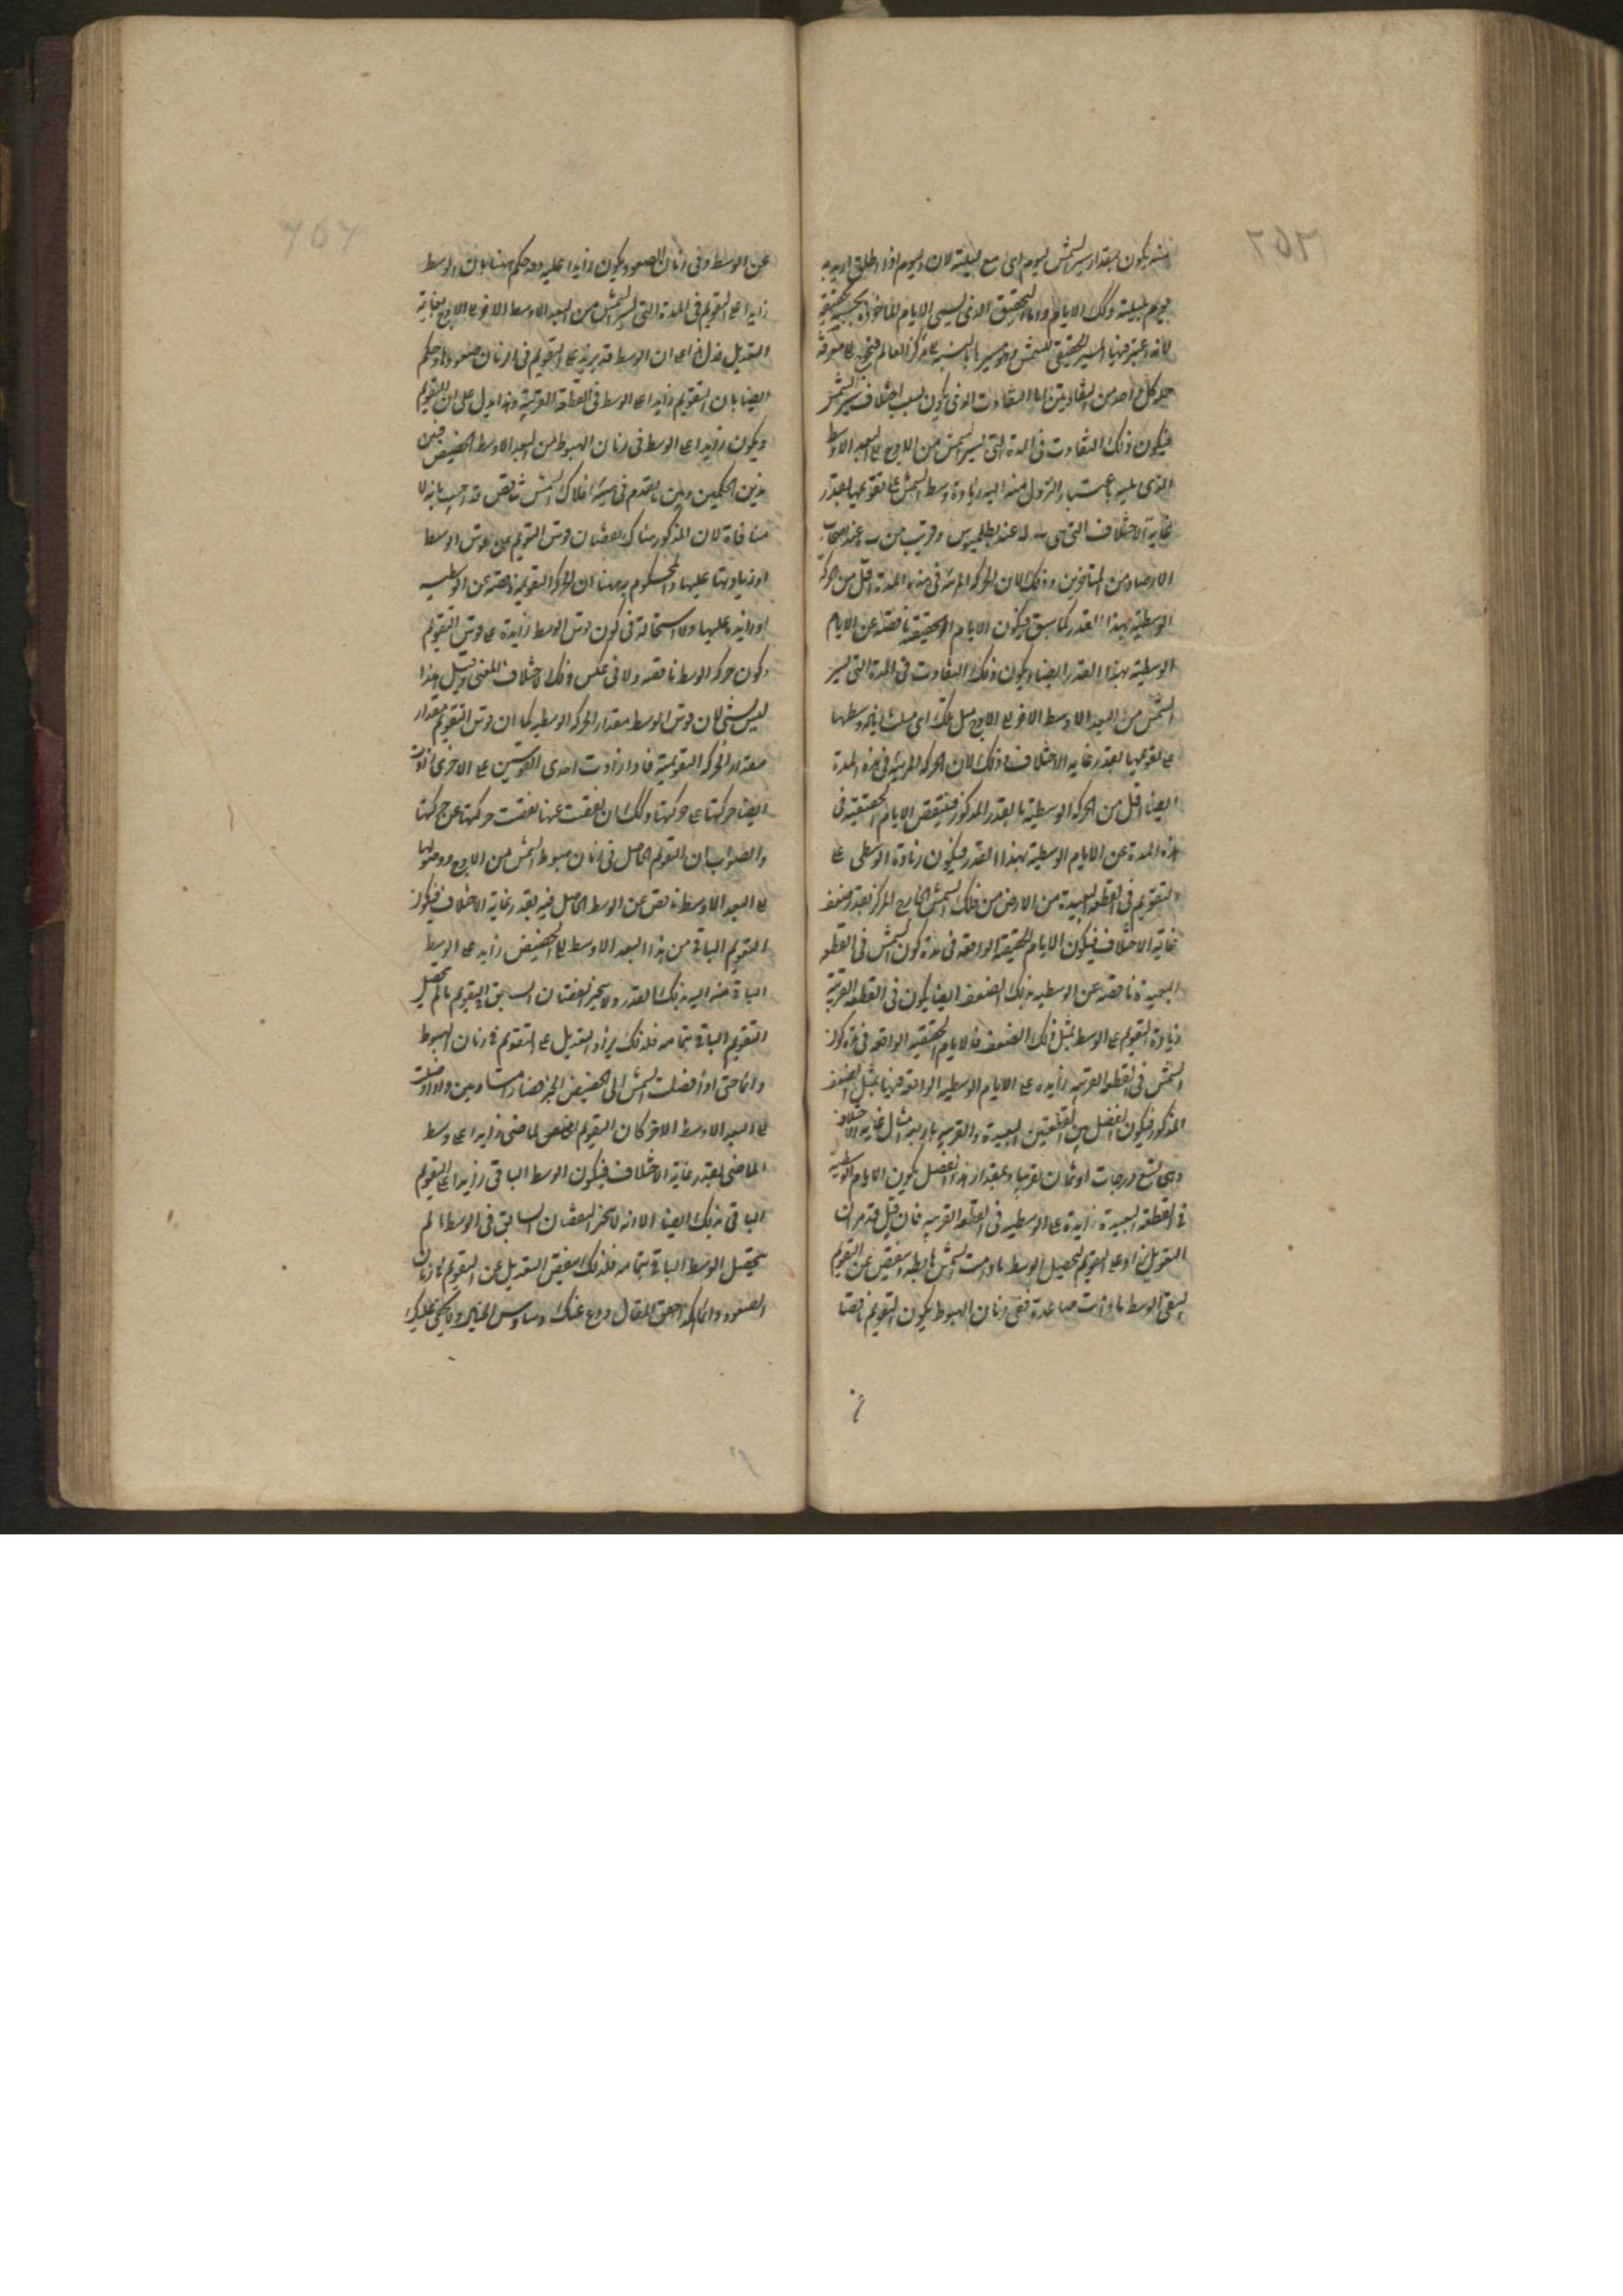 منه يكون بمقدار سير الشمس ليوم اى مع ليلته لان اليوم اذا اطلق اريد به
يوم بليلته وتلك الايام واما التحقيق الذى يسمى الايام الماخوذة بحسبه حقيقية
لانه اعتبر فيها المسير الحقيقى للشمس وهو مسيرها بالنسبة الى مركز العالم فيحتاج الى معرفة
كل واحد من التفاوتين اما التفاوت الذى يكون بسبب اختلاف سير الشمس
فيكون ذلك التفاوت فى المدة التى تسير الشمس من الاوج الى البعد الاوسط
الذى يليه باعتبار النزول منه اليه زيادة وسط الشمس على تقويمها بقدر
غاية الاختلاف التى هى عند بطلميوس وقريب من عند اصحاب
الارصاد من المتاخرين وذلك لان الحركة المرئية فى هذه المدة اقل من الحركة
الوسطية بهذا القدر كما سبق فيكون الايام الحقيقية ناقصة عن الايام
الوسطية بهذا القدر ايضا ويكون ذلك التفاوت فى المدة التى تسير
الشمس من البعد الاوسط الاخر الى الاوج مثل تلك اى مثل زيادة وسطها
على تقويمها بقدر غاية الاختلاف وذلك لان الحركة المرئية فى هذه المدة
ايضا اقل من الحركة الوسطية بالقدر المذكور فينقص الايام الحقيقية فى
هذه المدة عن الايام الوسطية بهذا القدر فيكون زيادة الوسطى على
التقويم فى القطعة البعيدة من الارض من فلك الشمس الخارج المركز بقدر ضعف
غاية الاختلاف فيكون الايام الحقيقية الواقعة فى مدة كون الشمس فى القطعة
البعيدة ناقصة عن الوسطيه بذلك الضعف ايضا يكون فى القطعة القريبة
زيادة التقويم على الوسط بمثل ذلك الضعف فالايام الحقيقية الواقعة فى مدة كون
الشمس فى القطعة القريبة زايده على الايام الوسطية الواقعة فيها بمثل الضعف
المذكور فيكون الفضل بين القطعتين البعيدة والقريبة باربعة امثال غاية الاختلاف
وهى تسع درجات او ثمان تقريبا وبمقدار هذا الفضل يكون الايام الوسطية
فى القطعة البعيدة زايدة على الوسطيه فى القطعة القريبه فان قيل قد مر ان
التعديل يزاد على التقويم لتحصيل الوسط ما دامت الشمس هابطه وينقص عن التقويم
ليبقى الوسط ما دامت صاعدة ففى زمان الهبوط يكون التقويم ناقصا
عن الوسط وفى زمان الصعود يكون زايدا عليه وقد حكم هنا بان الوسط
زايد على التقويم فى المدة التى تسير الشمس من البعد الاوسط الاخر الى الاوج بغاية
التعديل فدل ذا على ان الوسط قد يزيد على التقويم فى زمان صعودها وحكم
ايضا بان التقويم زايد على الوسط فى القطعة القريبة وهذا يدل على ان التقويم
ويكون زايدا على الوسط فى زمان الهبوط من البعد الاوسط الى الحضيض فبين
هذين الحكمين وبين ما تقدم فى هيئة افلاك الشمس تناقض قد اجيب بانه لا
منافاة لان المذكور هناك نقصان قوس التقويم على قوس الوسط
او زيادتها عليها والمحكوم به هنا ان الحركة التقويمية ناقصة عن الوسطيه
او زايدة عليها ولا استحالة فى كون قوس الوسط زايدة على قوس التقويم
وكون حركة الوسط ناقصة ولا فى عكس ذلك لاختلاف المعنى وقيل هذا
ليس بشئ لان قوس الوسط مقدار الحركة الوسطيه كما ان قوس التقويم مقدار
مقدار الحركة التقويمية فاذا زادت احدى القوسين على الاخرى زادت
ايضا حركتها على حركتها وكذلك ان نقصت عنها نقصت حركتها عن حركتها
والصواب ان التقويم الحاصل فى زمان هبوط الشمس من الاوج ووصولها
الى البعد الاوسط ناقص عن الوسط الحاصل فيه بقدر غاية الاختلاف فيكون
التقويم الباقى من هذا البعد الاوسط الى الحضيض زايد على الوسط
الباقى منه اليه بذلك القدر ولا يجبر النقصان السابق فى التقويم ما لم يحصل
التقويم الباقى بتمامه فلذلك يزاد التعديل على التقويم فى زمان الهبوط
دائما حتى اذا وصلت الشمس الى الحضيض انجبر فصارا متساويين واذا وصلت
الى البعد الاوسط الاخر كان التقويم الماضى زايدا على وسط
الماضى بقدر غاية الاختلاف فيكون الوسط الباقى زايدا على التقويم
الباقى بذلك ايضا الا انه لا يجبر النقصان السابق فى الوسط ما لم
يحصل الوسط الباقى بتمامه فلذلك ينقص التعديل عن التقويم فى زمان
الصعود دائما هذا حق المقال ودع عنك وساوس الخيال ولا يخفى عليك